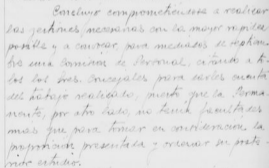 Concluyó comprometiéndose a realizar
las gestiones necesarias con la mayor rapidez
posible y a convocar, para mediados de septiem-
bre una Comisión de Personal, citando a to-
dos los Sres. Concejales para darles cuenta
del trabajo realizado, puesto que la Perma-
nente, por otro lado, no tenía facultades
mas que para tomar en consideración la
proposición presentada y ordenar su poste-
rior estudio.